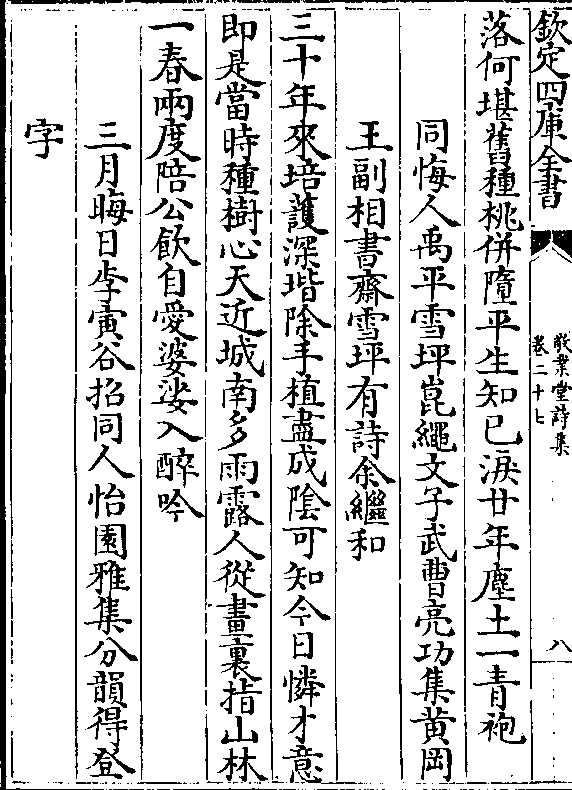 欽定四庫全書
敬業堂詩集
卷二十七
八
落何堪舊種桃併墮平生知已淚廿年塵土一青袍
同悔人禹平雪坪崑繩文子武曹亮功集黄岡
王副相書齋雪坪有詩余繼和
三十年來培䕶深堦除手植盡成陰可知今日憐才意
即是當時種樹心天近城南多雨露人從畫裏指山林
一春兩度陪公飲自愛婆娑入醉吟
三月晦日李寅谷招同人怡園雅集分韻得登
字